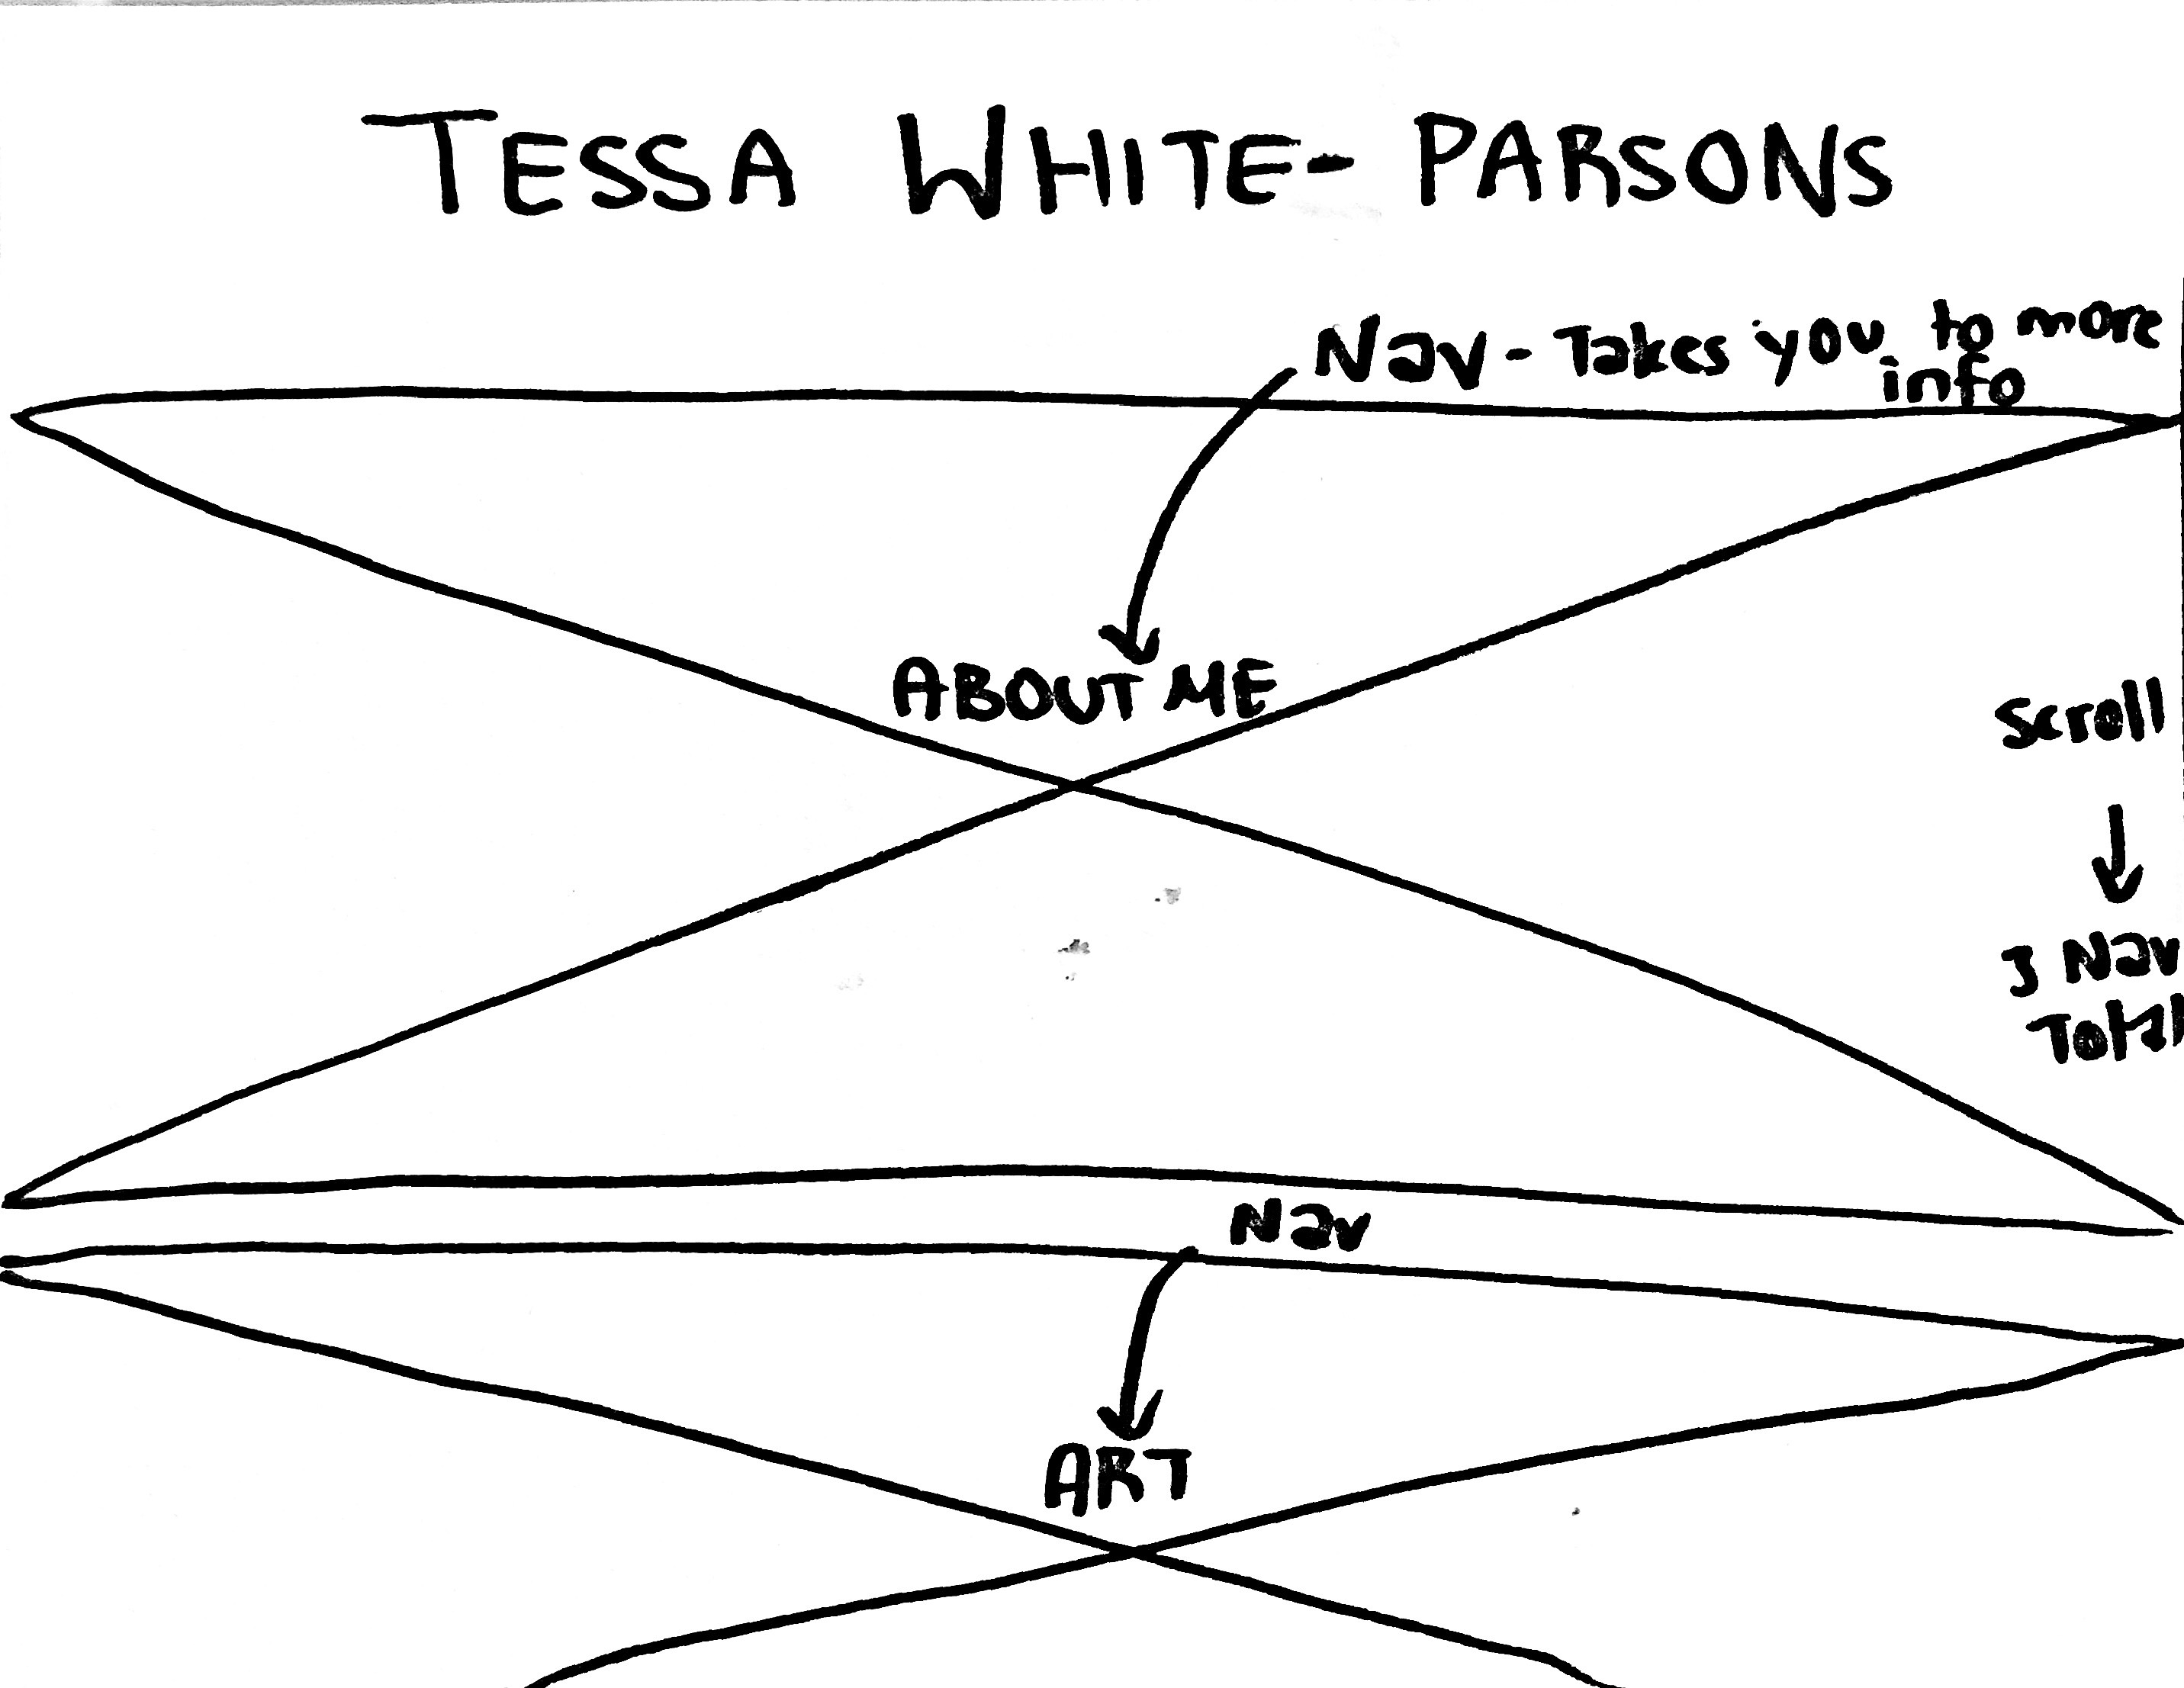 TESSA WHITE- PARSONS
Nav - Takes you to more
info
ABOUT ME
Scroll
3 Nav
Total
Nav
ART